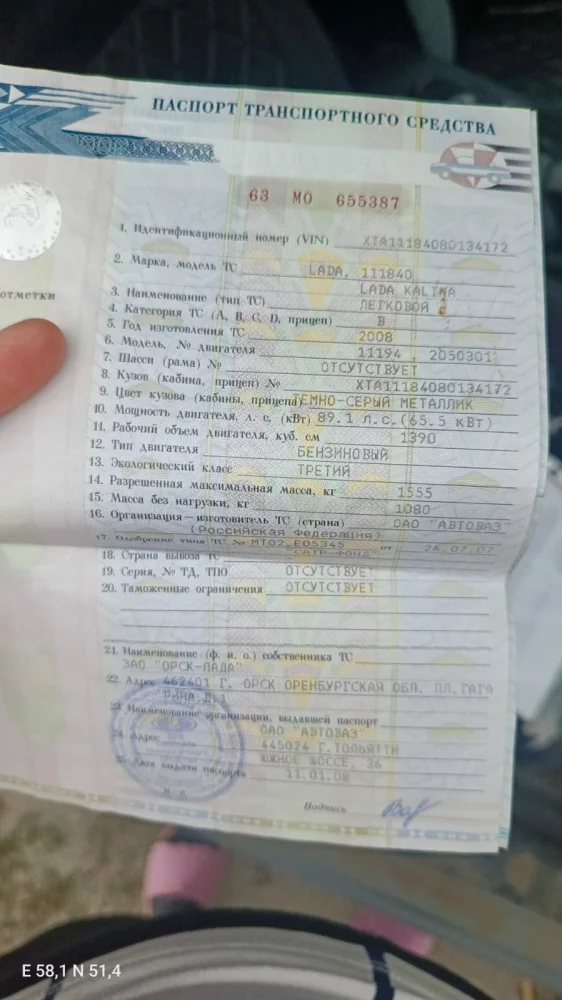 ПАСПОРТ ТРАНСПОРТНОГО СРЕДСТВА
63 МО 655387
отметки
1. Идентификационный номер (VIN) XTA11184080134172
2. Марка, модель ТС LADA, 111840
LADA KALINA
3. Наименование (тип ТС) ЛЕГКОВОЙ
4. Категория ТС (А, В, С, D, прицеп) В
5. Год изготовления ТС 2008
6. Модель, № двигателя 11194 , 2050301
7. Шасси (рама) № ОТСУТСТВУЕТ
8. Кузов (кабина, прицеп) № XTA11184080134172
9. Цвет кузова (кабины, прицепа) ТЕМНО-СЕРЫЙ МЕТАЛЛИК
10. Мощность двигателя, л. с. (кВт) 89.1 л.с.(65.5 кВт)
11. Рабочий объем двигателя, куб. см 1390
12. Тип двигателя БЕНЗИНОВЫЙ
13. Экологический класс ТРЕТИЙ
14. Разрешенная максимальная масса, кг 1555
15. Масса без нагрузки, кг 1080
16. Организация – изготовитель ТС (страна) ОАО "АВТОВАЗ
(РОССИЙСКАЯ ФЕДЕРАЦИЯ)
17. Одобрение типа ТС № МТ02.Е05345 от 26.07.07
"САТР-ФОНД"
18. Страна вывоза ТС
19. Серия, № ТД, ТПО ОТСУТСТВУЕТ
20. Таможенные ограничения ОТСУТСТВУЕТ
21. Наименование (ф. и. о.) собственника ТС
ЗАО "ОРСК-ЛАДА"
22. Адрес 462401 Г. ОРСК ОРЕНБУРГСКАЯ ОБЛ. ПЛ.ГАГА
РИНА Д.1
23. Наименование организации, выдавшей паспорт
ОАО "АВТОВАЗ"
24. Адрес 445024 Г.ТОЛЬЯТТИ
ЮЖНОЕ ШОССЕ, 36
25. Дата выдачи паспорта 11.01.08
М. П.
Подпись
E 58,1 N 51,4